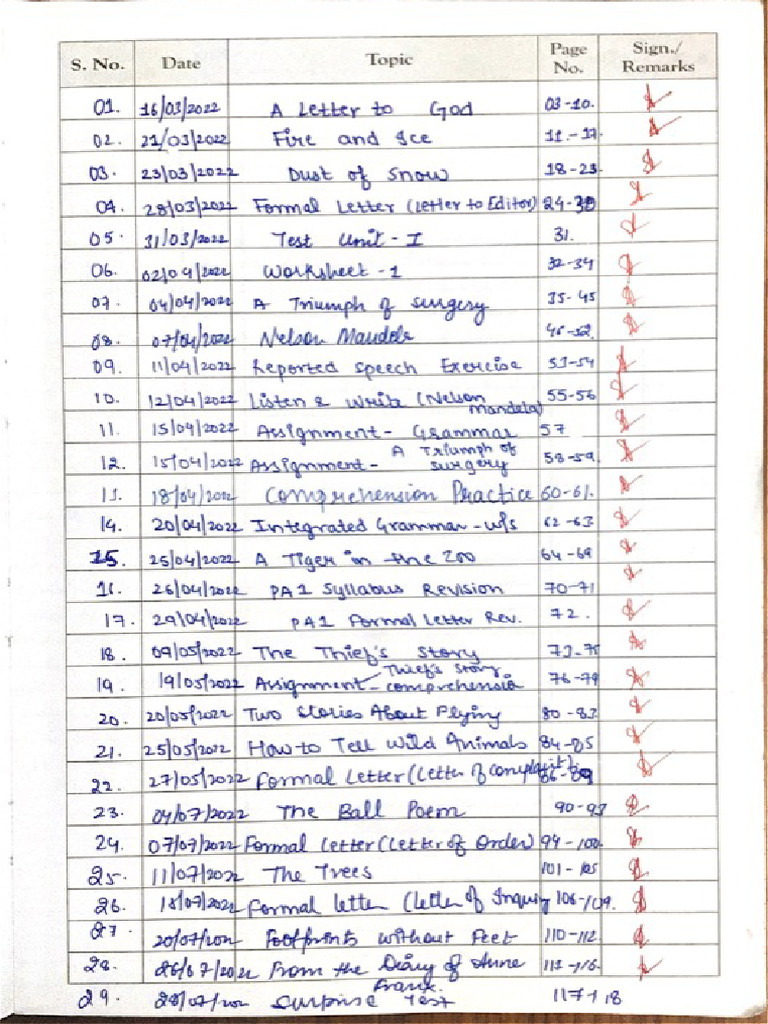 S. No. Date Topic Page No. Sign./ Remarks
01. 16/03/2022 A Letter to God 03-10.
02. 21/03/2022 Fire and Ice 11.-17.
03. 23/03/2022 Dust of Snow 18-23
04. 28/03/2022 Formal Letter (Letter to Editor) 24-30
05. 31/03/2022 Test Unit-I 31.
06. 02/04/2022 Worksheet-1 32-34
07. 04/04/2022 A Triumph of surgery 35-45
08. 07/04/2022 Nelson Mandela 46-52
09. 11/04/2022 Reported speech Exercise 53-54
10. 12/04/2022 Listen & Write (Nelson Mandela) 55-56
11. 15/04/2022 Assignment- Grammar 57
12. 15/04/2022 Assignment- A Triumph of surgery 58-59.
13. 18/04/2022 Comprehension Practice 60-61.
14. 20/04/2022 Integrated Grammar-w/s 62-63
15. 25/04/2022 A Tiger in the Zoo 64-69
16. 26/04/2022 PA1 Syllabus Revision 70-71
17. 29/04/2022 PA1 Formal Letter Rev. 72.
18. 09/05/2022 The Thief's Story 73-75
19. 19/05/2022 Assignment-Thief's Story comprehension 76-79
20. 20/05/2022 Two Stories About Flying 80-83
21. 25/05/2022 How to Tell Wild Animals 84-85
22. 27/05/2022 Formal Letter (Letter of complaint). 86-89
23. 04/07/2022 The Ball Poem 90-93
24. 07/07/2022 Formal Letter (Letter of Order) 94-100
25. 11/07/2022 The Trees 101-105
26. 18/07/2022 Formal letter (Letter of Inquiry 106-109.
27. 20/07/2022 Footprints without Feet 110-112
28. 26/07/2022 From the Diary of Anne Frank. 113-116.
29. 28/07/202 Surprise Test 117-118